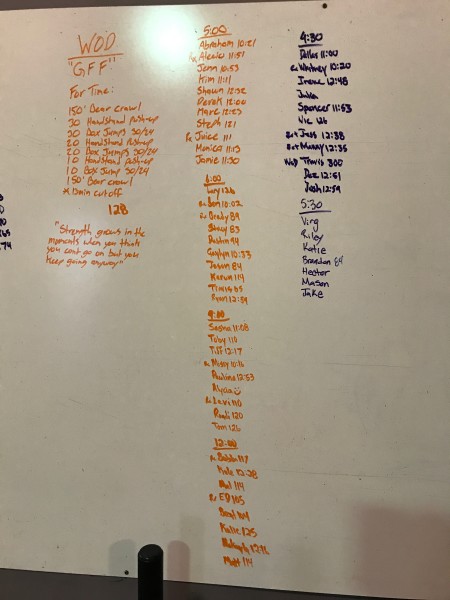 WOD
"GFF"
For Time:
150' Bear crawl
30 Handstand push-up
30 Box Jumps 30/24
20 Handstand push-up
20 Box Jumps 30/24
10 Handstand push-up
10 Box Jump 30/24
150' Bear crawl
128
"Strength grows in the
moments when you think
you cant go on but you
keep going anyway"
5:00
Abraham 10:21
Alexis 11:51
Jenn 10:53
Kim 11:11
Shawn 12:32
Derek 12:00
Marc 12:23
Steph 121
Juice 111
Monica 11:13
Jamie 11:30
6:00
126
Ben 10:02
Brady 89
Stacy 83
Dustin 94
10:33
Jason 84
114
Travis 55
Ryan 12:59
9:00
Sasha 11:08
Toby 110
Tiff 12:17
Missy 10:16
Paulina 12:53
Alycia
Levi 110
120
Tim 126
12:00
117
12:28
114
ED 105
104
Katie 125
Matt 114
4:30
11:00
Whitney 10:20
Irene 12:48
Spencer 11:53
Vic 126
Jess 12:38
Manny 12:35
Travis 300
Doz 12:51
Josh 12:59
5:30
Virg
Riley
Katie
Brandon 84
Hector
Mason
Jake
74